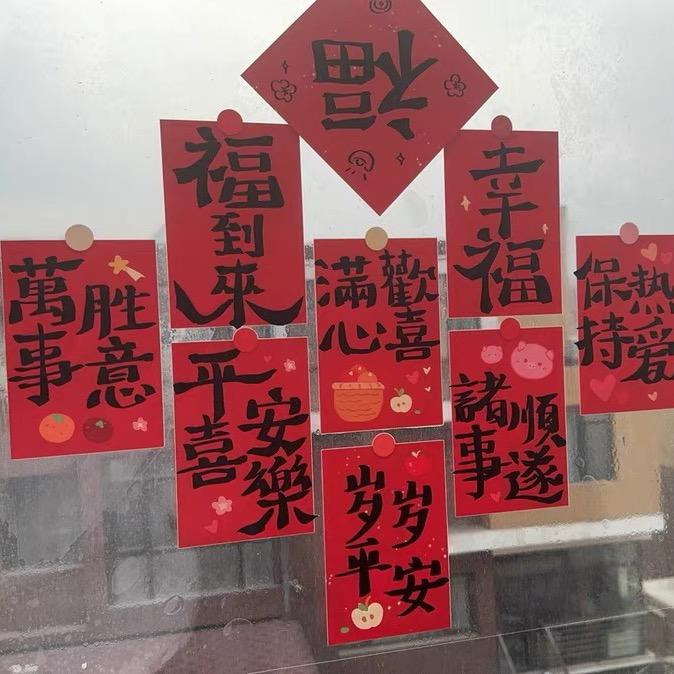 福
福到來
幸福
萬事胜意
滿心歡喜
保持热爱
平安喜樂
諸事順遂
岁岁平安